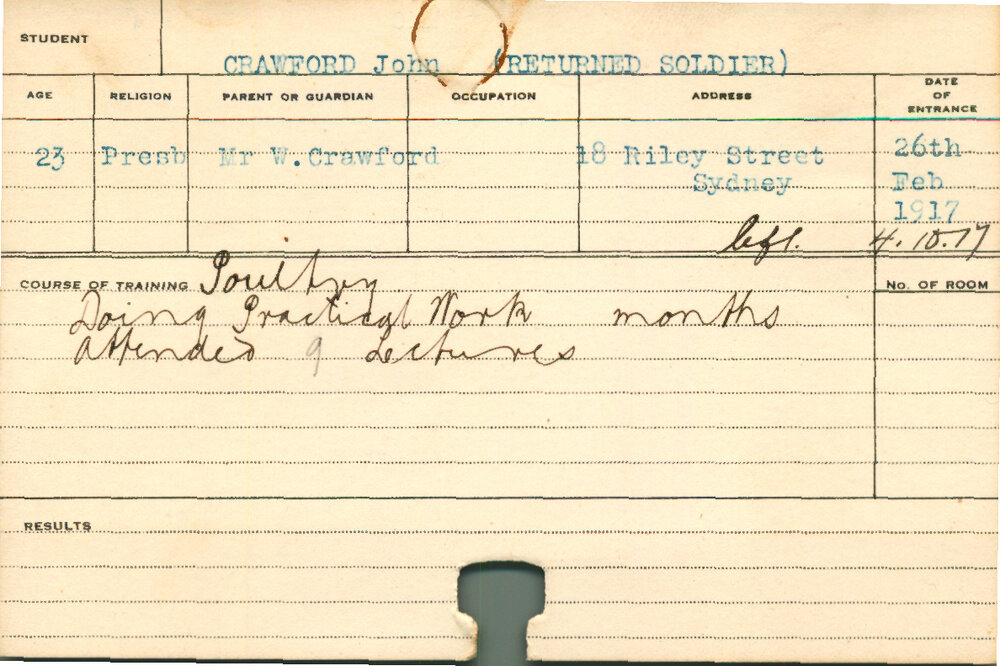 STUDENT
CRAWFORD John (RETURNED SOLDIER)
AGE RELIGION PARENT OR GUARDIAN OCCUPATION ADDRESS DATE OF ENTRANCE
23 Presb Mr W.Crawford 18 Riley Street 26th
Sydney Feb
1917
left. 4.10.17
COURSE OF TRAINING Poultry No. OF ROOM
Doing Practical Work months
Attended 9 Lectures
RESULTS